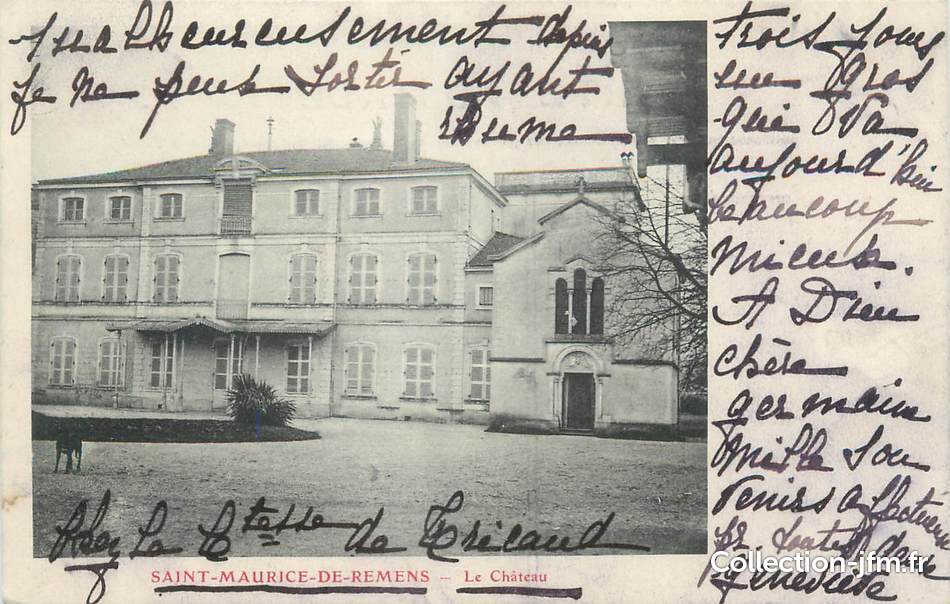 Malheureusement depuis
je ne peux sortir ayant
rhume
trois jours
un gros
qui va
aujourd'hui
beaucoup
mieux.
A Dieu
chère
germaine
Mille sou
venirs affectueux
Geneviève
chez la Ctesse de Tricaud
SAINT-MAURICE-DE-REMENS – Le Château
Collection-jfm.fr